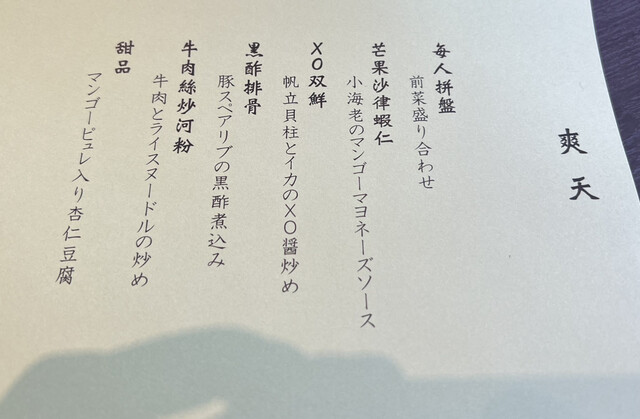 爽天
每人拼盤
前菜盛り合わせ
芒果沙律蝦仁
小海老のマンゴーマヨネーズソース
XO双鮮
帆立貝柱とイカのXO醤炒め
黒酢排骨
豚スペアリブの黒酢煮込み
牛肉絲炒河粉
牛肉とライスヌードルの炒め
甜品
マンゴーピュレ入り杏仁豆腐